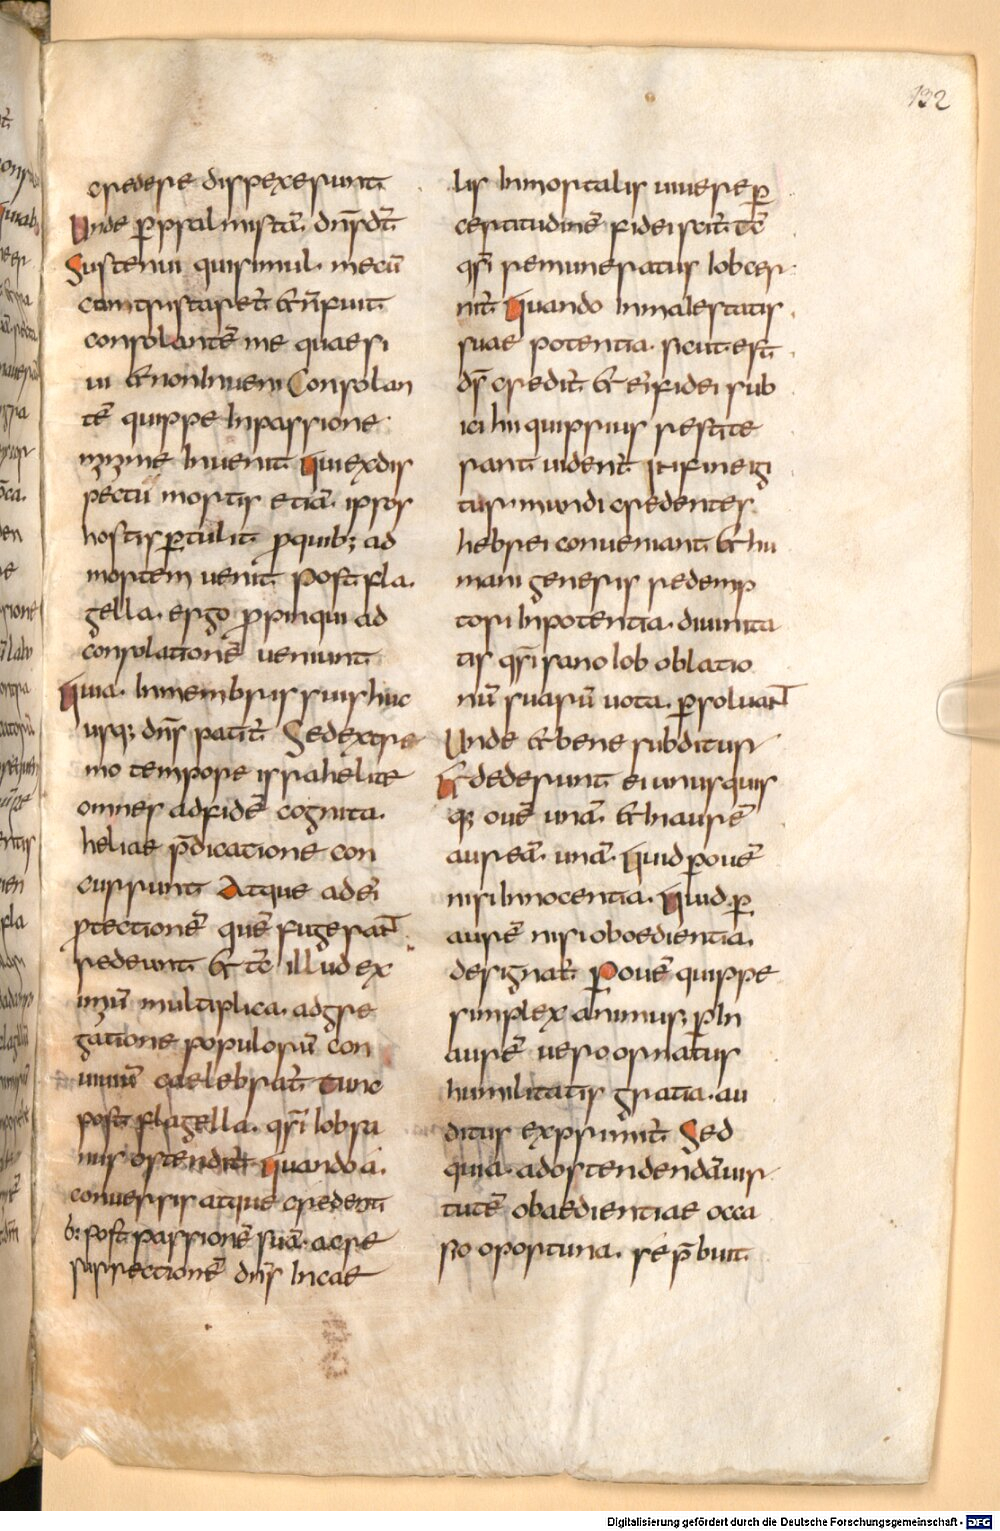 132
credere dispexerunt.
Unde p̄ psalmistā. dn̄s dr̄.
Sustenui qui simul. mecū
contristaret̄ & n̄ fuit
consolantē me quaesi
ui & non inueni Consolan
tē quippe in passione
minime inuenit qui ex dis
pectu mortis etiā. ipsos
hostis ꝑtulit ꝓ quib; ad
mortem uenit. Post fla.
gella. ergo ꝓpinqui ad
consolationē ueniunt
quia. in membris suis huc
usq; dn̄s patit̄ Sed extre
mo tempore israhelite
omnes ad fidē cognita.
heliae p̄dicatione con
currunt Atque ad ei
ꝓtectionē quē fugerant.
redeunt & tc̄ illud ex
imiū multiplica. adgre
gatione populorū con
uiuiū caelebrat̄ tunc
post flagella. qs̄i iob sa
nus ostendit̄ quando a.
conuersis atque credent
b: post passionē suā. ac re
surrectionē dn̄s in cae
lis inmortalis uiuere ꝑ
certitudinē fidei scit̄ tc̄
qs̄i remuneratus iob cer
nit̄ quando in maiestatis
suae potentia. sicut est
ds̄ credit̄ & ei fidei sub
ici hii qui prius resite
rant uident̄ Itē fine igi
tur mundi credentes.
hebrei conueniant & hu
mani generis redemp
tori in potentia. diuinita
tis qs̄i sano iob oblatio
nū suarū uota. ꝑsoluant
Unde & bene subditur
Et dederunt ei unusquis
q; ouē unā. & inaurē
aureā. unā. quid ꝑ ouē
nisi innocentia. quid ꝑ
aurē nisi oboedientia.
designat̄ Per ouē quippe
simplex animus; ꝑ in
aurē uero ornatus
humilitatis gratia. au
ditus exprimit̄ Sed
quia. ad ostendendā uir
tutē obaedientiae occa
sio oportuna. se p̄buit.
Digitalisierung gefördert durch die Deutsche Forschungsgemeinschaft - DFG